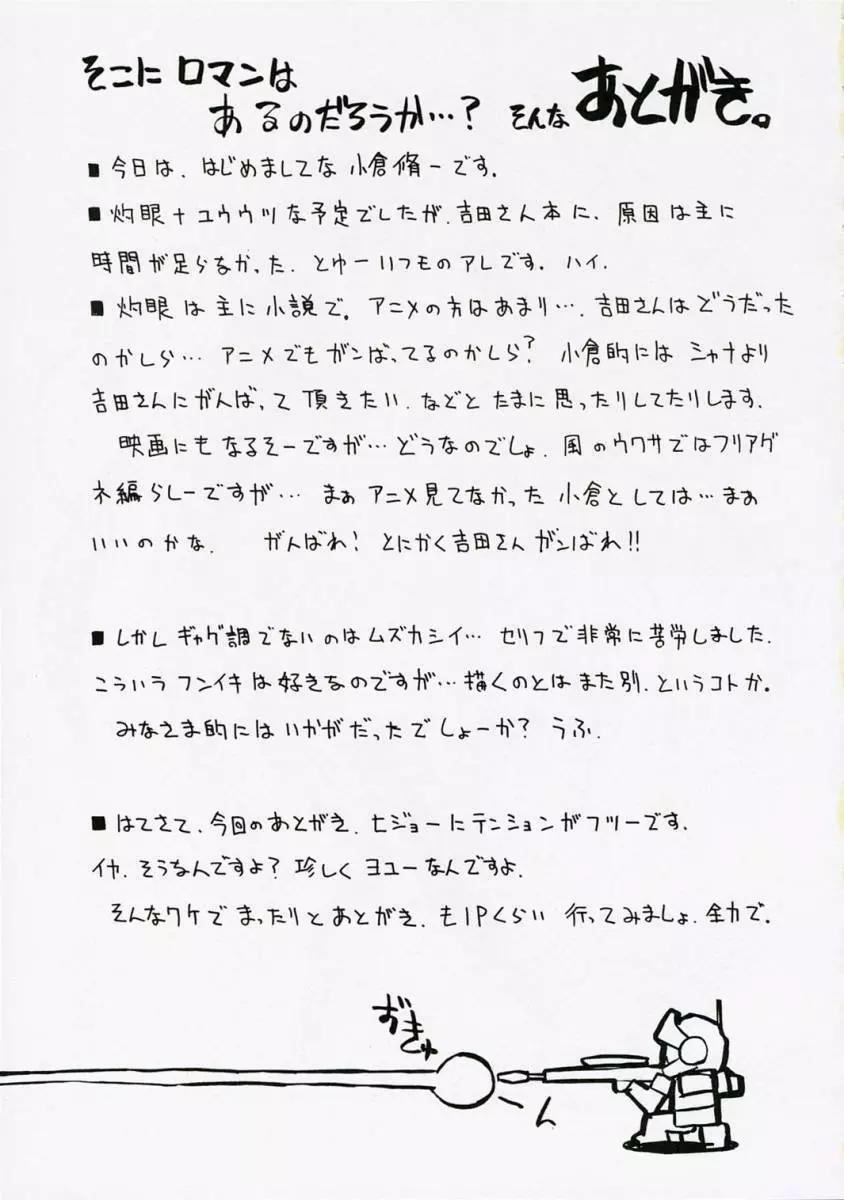 そこに ロマンは
あるのだろうか…? そんな あとがき。
■今日は、はじめましてな 小倉脩一です。
■灼眼+ユウウツな予定でしたが、吉田さん本に、原因は主に
時間が足らなかった、とゆーいつものアレです。ハイ、
■灼眼は主に小説で。アニメの方はあまり…、吉田さんはどうだった
のかしら… アニメでもガンばってるのかしら? 小倉的には シャナより
吉田さんにがんばって 頂きたい、などと たまに思ったりしてたりします。
映画にもなるそーですが…どうなのでしょ、風のウワサではフリアグ
ネ編らしーですが… まぁ アニメ見てなかった 小倉としては…まぁ
いいのかな、 がんばれ! とにかく吉田さん ガンばれ!!
■しかし ギャグ調でないのはムズカシイ… セリフで非常に苦労しました、
こういう フンイキは好きなのですが…描くのとは また別、というコトか。
みなさま的にはいかがだったでしょーか? うふ、
■はてさて、今回のあとがき、ヒジョーにテンションがフツーです、
イヤ、そうなんですよ? 珍しく ヨユーなんですよ、
そんなワケで まったりと あとがき、も1Pくらい 行ってみましょ、全力で。
おきゅ
ーん